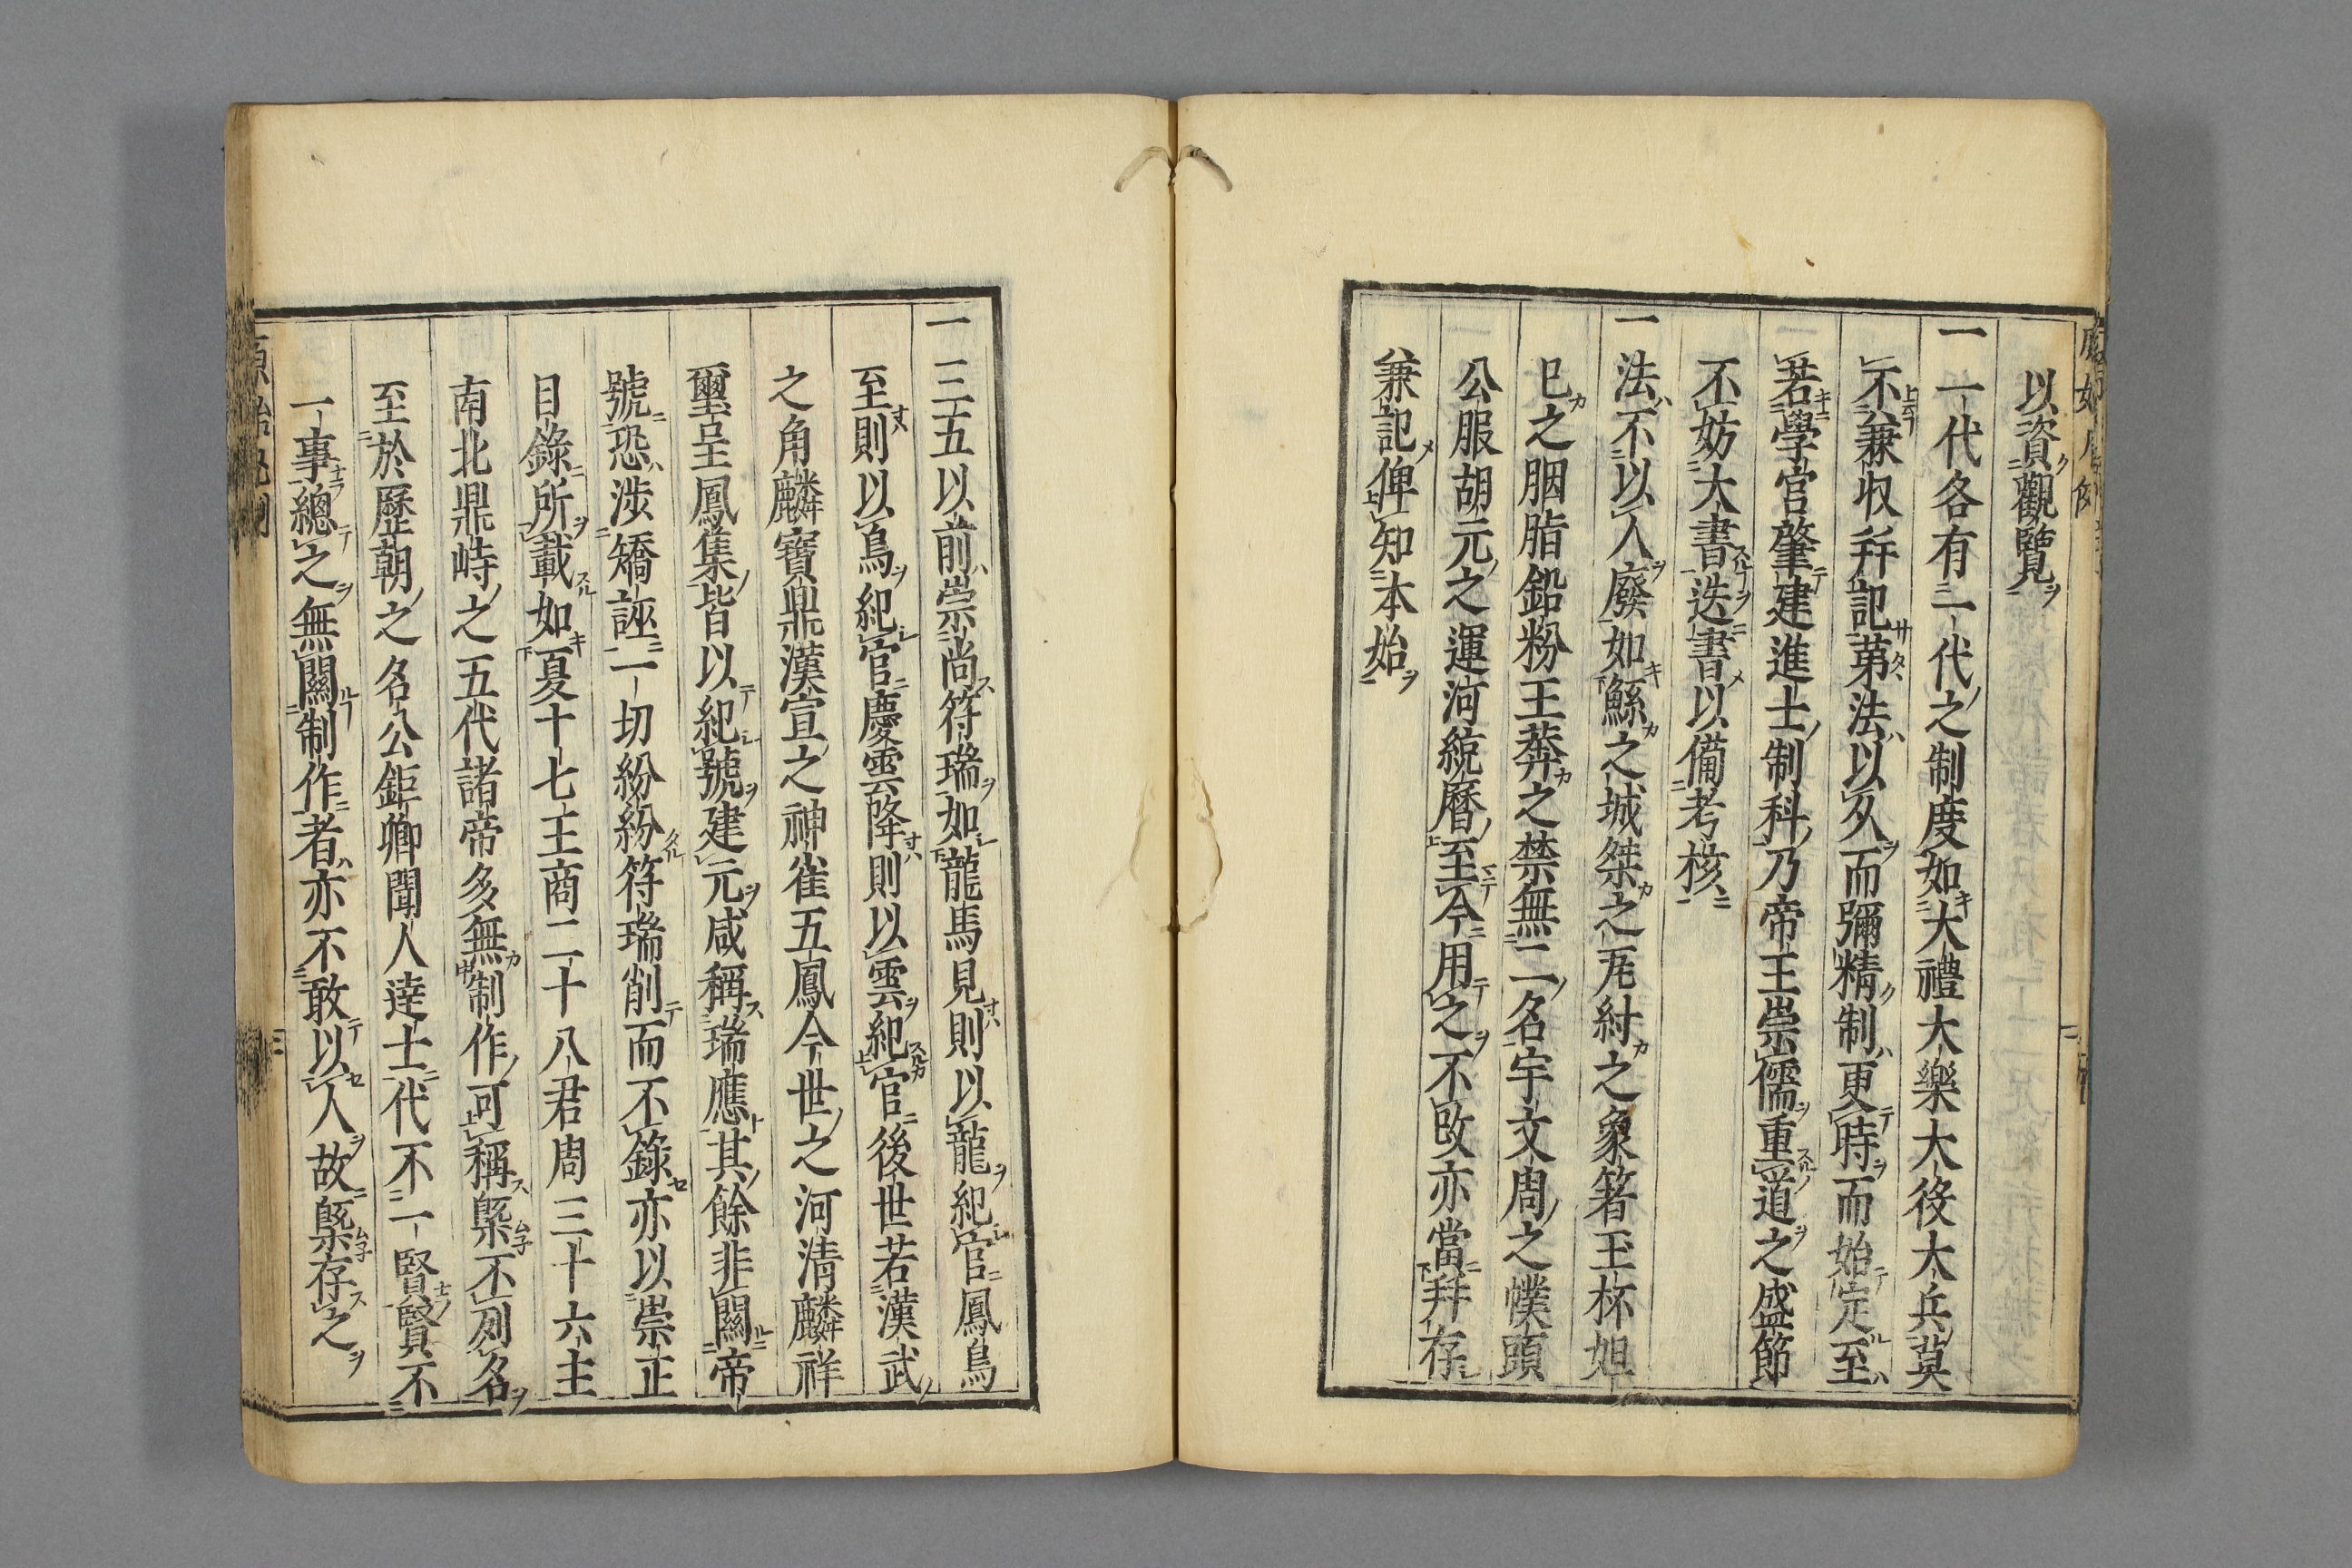 以資觀覽
一一代各有一代之制度如大禮大樂大役大兵莫
不兼収并記第法以久而彌精制更時而始定至
若學官肇建進士制科乃帝王崇儒重道之盛節
不妨大書迭書以備考核
一法不以人廢如鯀之城桀之瓦紂之象箸玉杯妲
已之胭脂鉛粉王莽之禁無二名宇文周之幞頭
公服胡元之運河統曆至今用之不改亦當并存
兼記俾知本始
一三五以前崇尚符瑞如龍馬見則以龍紀官鳳鳥
至則以鳥紀官慶雲降則以雲紀官後世若漢武
之角麟寶鼎漢宣之神雀五鳳今世之河清麟祥
璽呈鳳集皆以紀號建元咸稱瑞應其餘非關帝
號恐涉矯誣一切紛紛符瑞削而不錄亦以崇正
目錄所載如夏十七王商二十八君周三十六主
南北鼎峙之五代諸帝多無制作可稱槩不列名
至於歷朝之名公鉅卿聞人達士代不一賢賢不
一事總之無關制作者亦不敢以人故槩存之
三